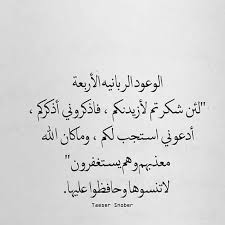 الوعود الربانيه الأربعة
"لئن شكرتم لأزيدنكم ، فاذكروني أذكركم ،
أدعوني استجب لكم ، وماكان الله
معذبهم وهم يستغفرون"
لاتنسوها وحافظوا عليها.
Taeser Snober